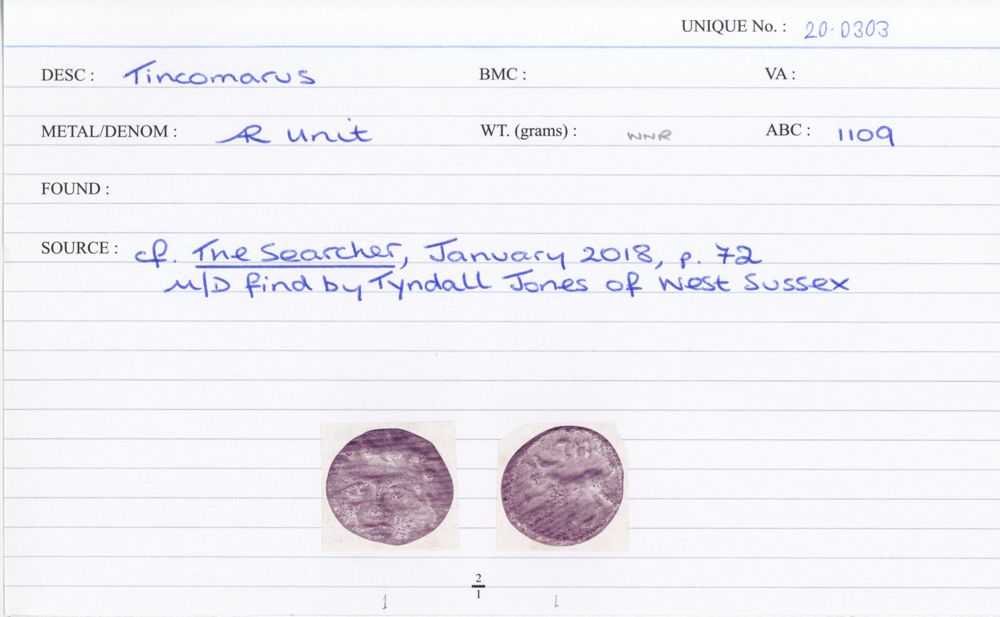 UNIQUE No. : 20.0303
DESC : Tincomarus BMC : VA :
METAL/DENOM : AR Unit WT. (grams) : WNR ABC : 1109
FOUND :
SOURCE : cf. The Searcher, January 2018, p. 72
M/D find by Tyndall Jones of West Sussex
2
1
1 1